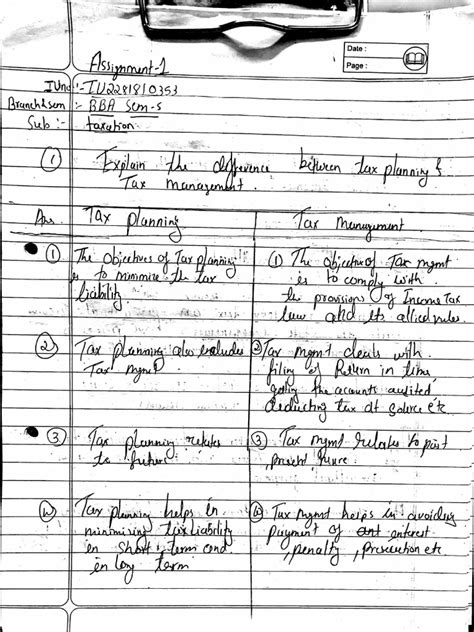 Date :
Page :
Assignment-1
IU no :- IU2281810353
Branch&sem :- BBA Sem-5
Sub :- taxation
(1) Explain the difference between tax planning &
Tax management.
Ans. Tax planning
Tax Management
(1) The Objectives of Tax planning
is to minimize the tax
liability.
(1) The Objective of Tax mgmt
is to comply with
the provisions of Income Tax
law and its allied rules.
(2) Tax planning also
Tax mgmt
(2) Tax mgmt deals with
filing of Return in time,
getting the accounts audited
deducting tax at source etc
(3) Tax planning relates
to future
(3) Tax mgmt relates to past
, present, future.
(4) Tax planning helps in
minimizing tax liability
in short term and
in long term
(4) Tax mgmt helps in avoiding
payment of interest
, penalty, prosecution etc